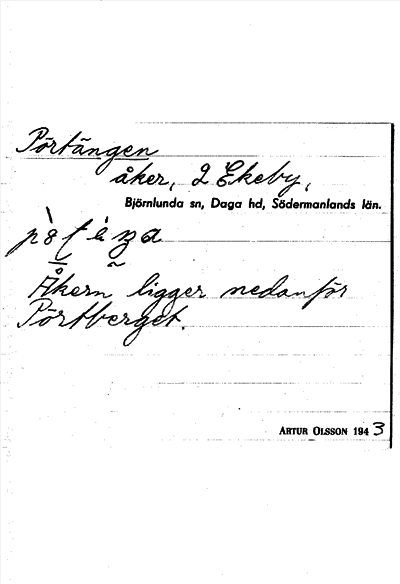 Pörtängen
åker, 2 Ekeby,
Björnlunda sn, Daga hd, Södermanlands län.
Åkern ligger nedanför
Pörtberget.
ARTUR OLSSON 1943